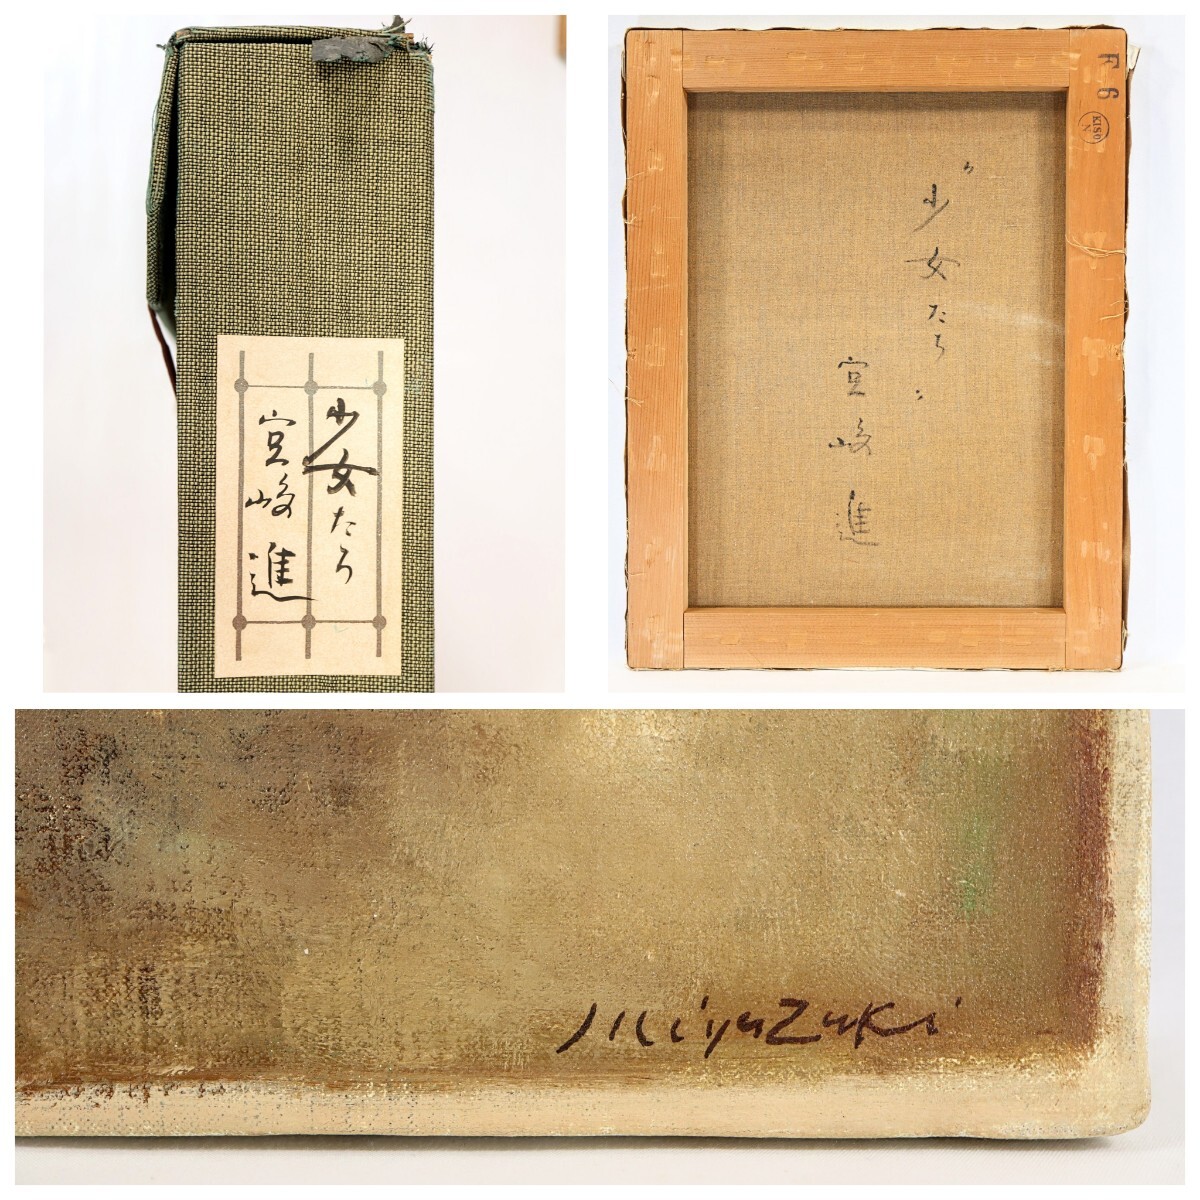 少女たち
宮崎進
F6
KISO
N
"少女たち"
宮崎進
Miyazaki